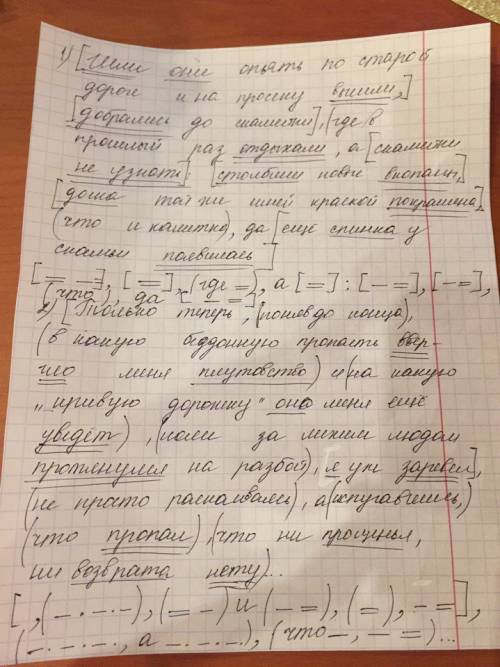 1) [Шли они опять по старой
дороге и на просеку вышли,]
[добрались до скамейки], (где в
прошлый раз отдыхали, а [скамейки
не узнать]: [столбики новые вкопаны,]
[доска той же синей краской покрашена,]
(что и калитка), да [ещё спинка у
скамьи появилась]
[= =], [=], (где =), а [=] : [– =], [– =],
(что), да [– =]
2) [Только теперь, (поняв до конца),
(в какую бездонную пропасть ввер-
гло меня плутовство) и (на какую
„кривую дорожку" оно меня ещё
уведёт), (коли за лихим людом
протянулся на разбой), я уж заревел],
(не просто раскаиваясь), а (испугавшись,)
(что пропал), (что ни прощенья,
ни возврата нету)...
[ , (–.–.–), (= –) и (– =), (=), – =],
(–.–.–.–, а –.–.–.), (что –, – =)...